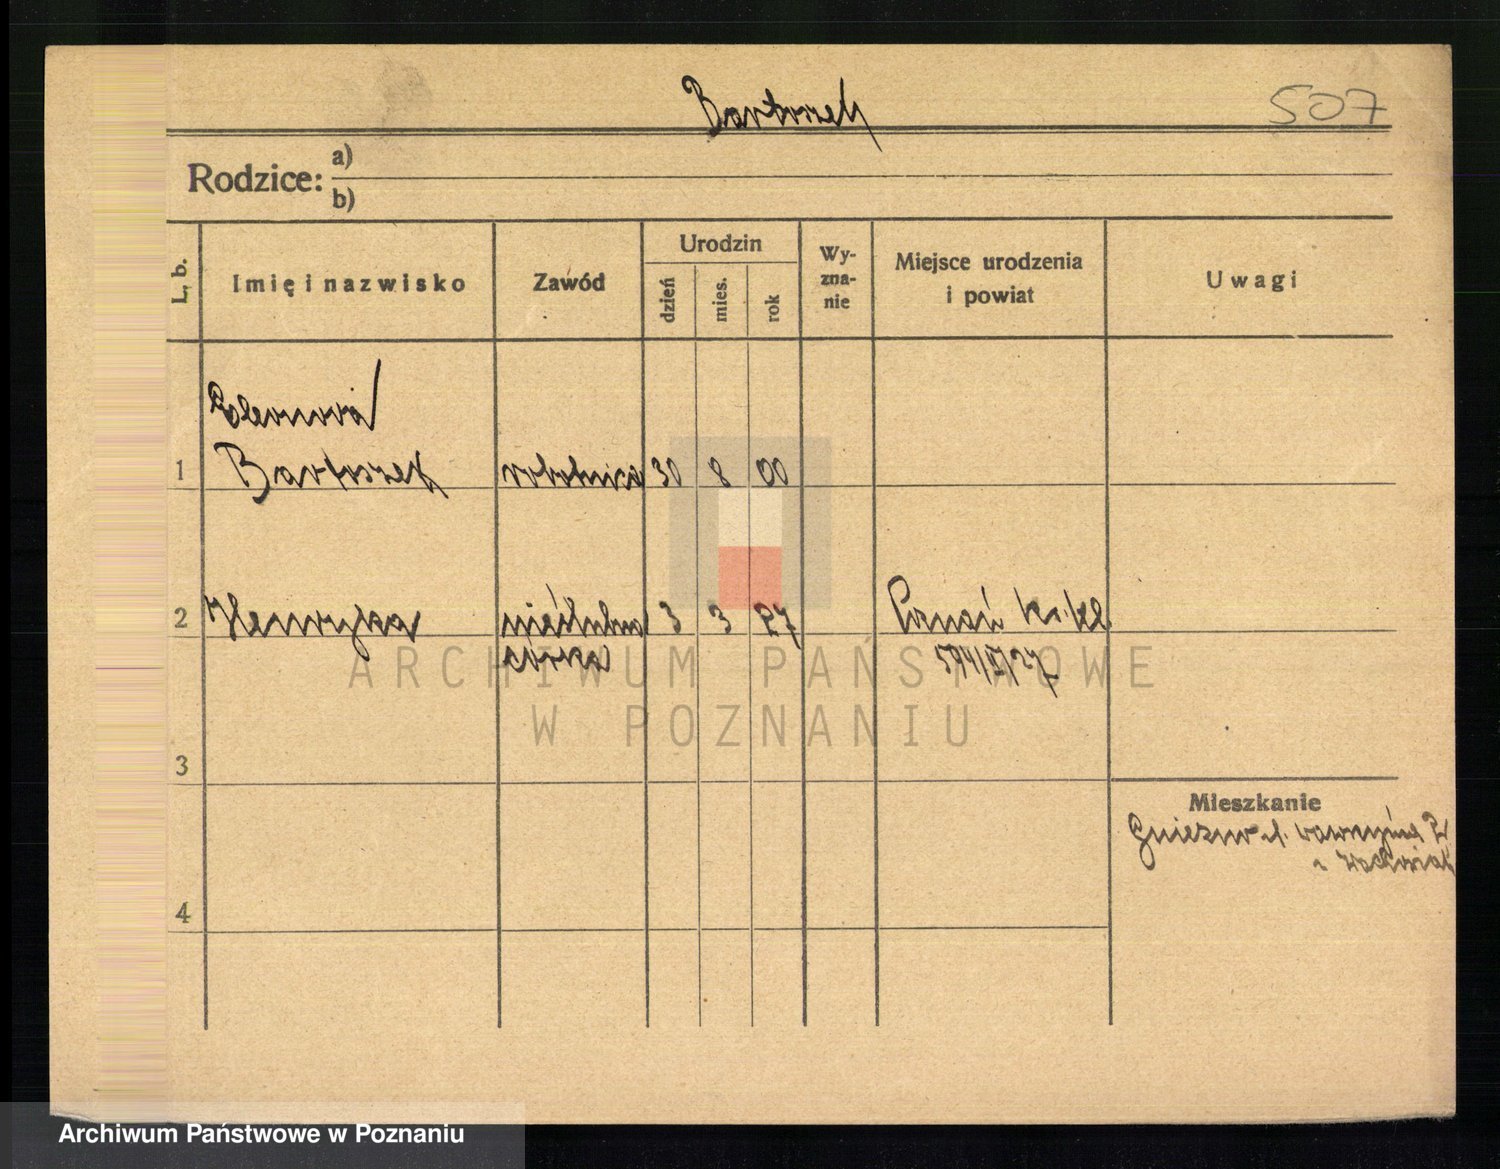 Bartoszek
507
Rodzice: a)
b)
L. b.
Imię i nazwisko
Zawód
Urodzin
dzień
mies.
rok
Wy-
zna-
nie
Miejsce urodzenia
i powiat
Uwagi
Eleonora
1 Bartoszek robotnica 30 8 00
2 Henryka nieślubna 3 3 27 Poznań
córka
3
4
Mieszkanie
Gniezno
ARCHIWUM PAŃSTWOWE
W POZNANIU
Archiwum Państwowe w Poznaniu